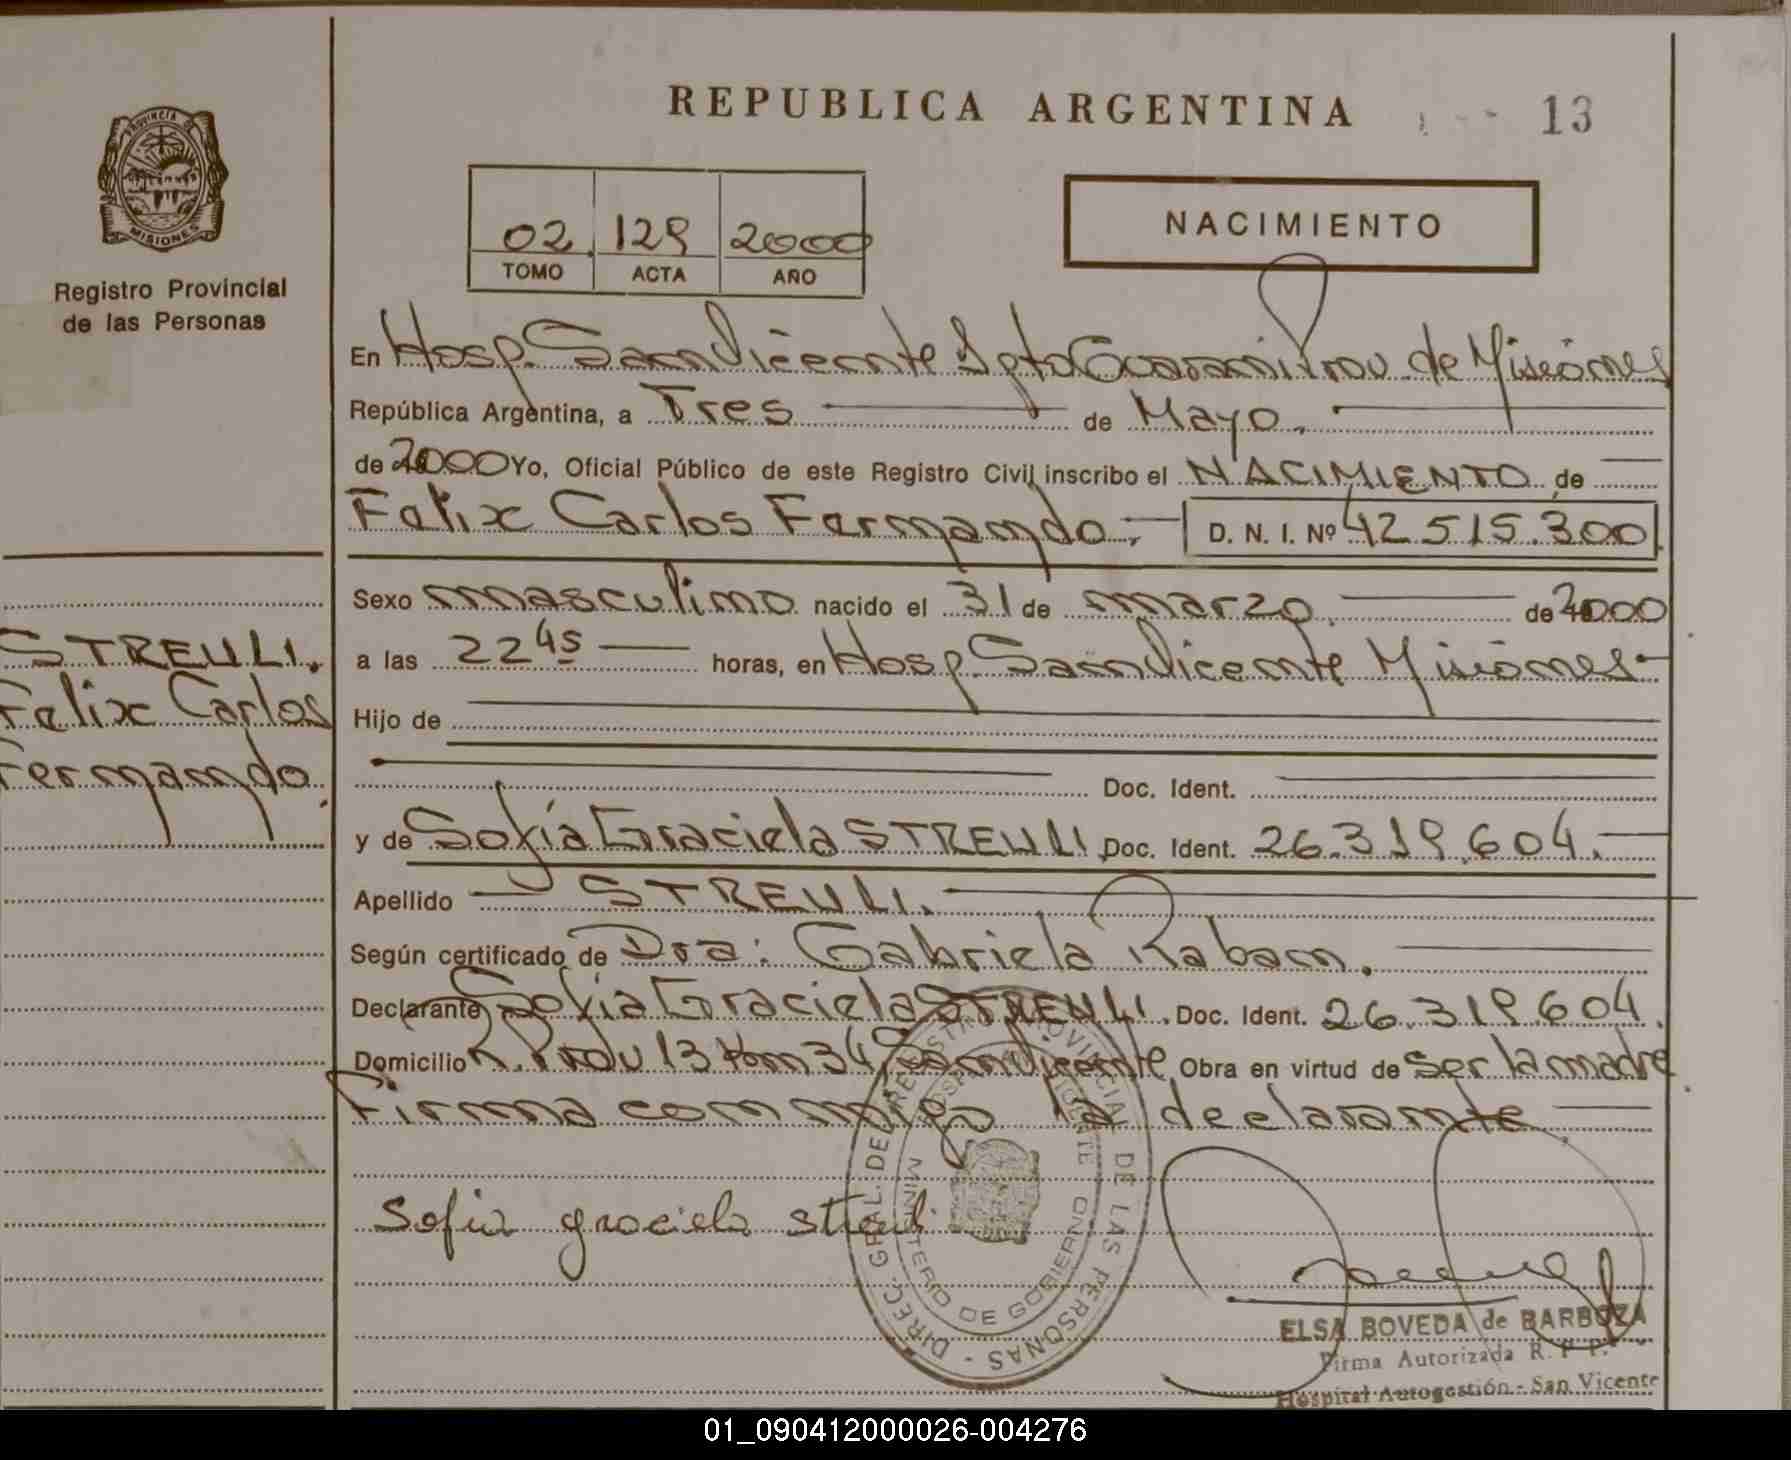 REPUBLICA ARGENTINA 13
PROVINCIA DE
MISIONES
Registro Provincial
de las Personas
02 129 2000
TOMO ACTA AÑO
NACIMIENTO
En Hosp. San Vicente Dpto Guaraní Prov. de Misiones
República Argentina, a Tres de Mayo.
de 2000 Yo, Oficial Público de este Registro Civil inscribo el NACIMIENTO de
Felix Carlos Fernando. D. N. I. Nº 42.515.300
Sexo masculino nacido el 31 de marzo. de 2000
a las 22 45 horas, en Hosp. San Vicente Misiones
Hijo de
Doc. Ident.
y de Sofía Graciela STREULI Doc. Ident. 26.319.604.
Apellido STREULI.
Según certificado de Dra: Gabriela Raban.
Declarante Sofía Graciela STREULI. Doc. Ident. 26.319.604.
Domicilio R. Prov 13 Km 34 San Vicente Obra en virtud de Ser la madre.
Firma conmigo la declarante
STREULI.
Felix Carlos
Fernando.
Sofia graciela streuli
DIREC. GRAL. DEL REGISTRO PROVINCIAL DE LAS PERSONAS -
MINISTERIO DE GOBIERNO
ELSA BOVEDA de BARBOZA
Firma Autorizada R. P. P.
Hospital Autogestión - San Vicente
01_090412000026-004276